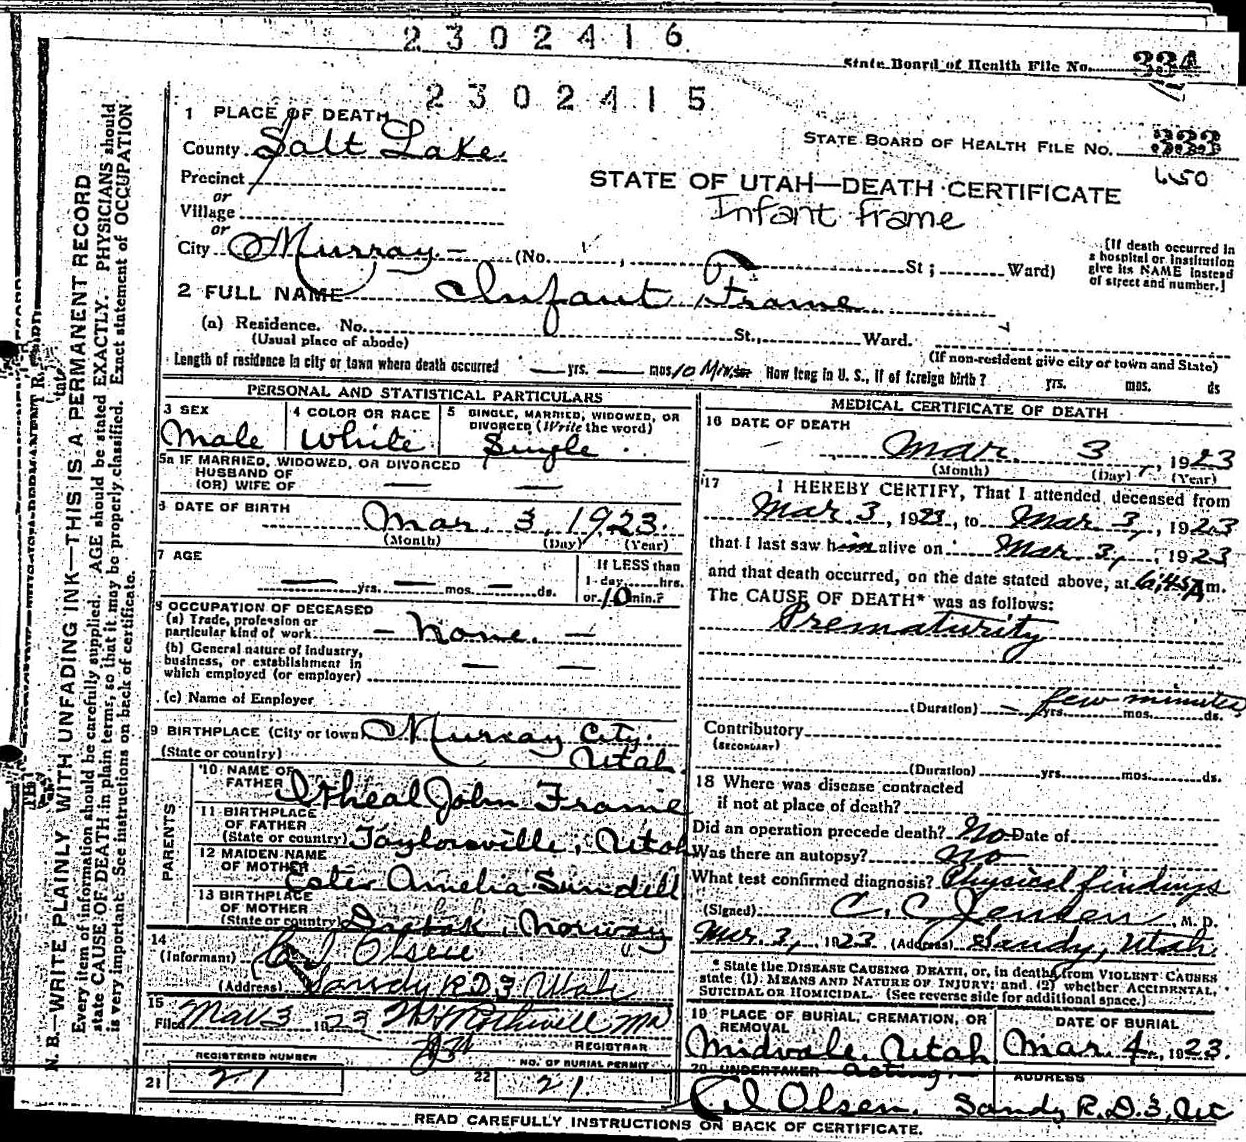 2302416
State Board of Health File No. 334
2302415
1 PLACE OF DEATH
STATE BOARD OF HEALTH FILE No. 333
650
County Salt Lake
Precinct
STATE OF UTAH—DEATH CERTIFICATE
Infant Frame
or
Village
or
City Murray (No. St; Ward)
[If death occurred in a hospital or institution give its NAME instead of street and number.]
2 FULL NAME Infant Frame
(a) Residence. No. St., Ward.
(Usual place of abode) (If non-resident give city or town and State)
Length of residence in city or town where death occurred — yrs. — mos. 10 Min. How long in U. S., if of foreign birth? yrs. mos. ds
PERSONAL AND STATISTICAL PARTICULARS
3 SEX Male
4 COLOR OR RACE White
5 SINGLE, MARRIED, WIDOWED, OR DIVORCED (Write the word) Single
5a IF MARRIED, WIDOWED, OR DIVORCED
HUSBAND OF
(OR) WIFE OF — —
6 DATE OF BIRTH Mar. 3, 1923.
(Month) (Day) (Year)
7 AGE — yrs. — mos. — ds.
If LESS than
1 day, hrs.
or 10 min.?
8 OCCUPATION OF DECEASED
(a) Trade, profession or
particular kind of work — none. —
(b) General nature of industry,
business, or establishment in
which employed (or employer) — —
(c) Name of Employer
9 BIRTHPLACE (City or town) Murray City.
(State or country) Utah.
PARENTS
10 NAME OF
FATHER Itheal John Frame
11 BIRTHPLACE
OF FATHER
(State or country) Taylorsville, Utah
12 MAIDEN NAME
OF MOTHER Ester Amelia Sundell
13 BIRTHPLACE
OF MOTHER
(State or country) Drobak, Norway
14
(Informant) Olsen
(Address) Sandy R.D.3 Utah
15
Filed Mar 3 1923 Rothwell MD
REGISTRAR
REGISTERED NUMBER
21 21
NO. OF BURIAL PERMIT
22 21.
MEDICAL CERTIFICATE OF DEATH
16 DATE OF DEATH
Mar. 3, 1923
(Month) (Day) (Year)
17 I HEREBY CERTIFY, That I attended deceased from
Mar 3, 1923, to Mar 3, 1923
that I last saw him alive on Mar 3, 1923
and that death occurred, on the date stated above, at 6,45 A m.
The CAUSE OF DEATH* was as follows:
Prematurity
(Duration) — yrs. few minutes mos. ds.
Contributory
(SECONDARY)
(Duration) yrs. mos. ds.
18 Where was disease contracted
if not at place of death?
Did an operation precede death? No Date of
Was there an autopsy? No
What test confirmed diagnosis? Physical findings
(Signed) C. C. Jensen M. D.
Mar. 3, 1923 (Address) Sandy, Utah.
* State the DISEASE CAUSING DEATH, or, in deaths from VIOLENT CAUSES
state (1) MEANS AND NATURE OF INJURY; and (2) whether ACCIDENTAL,
SUICIDAL OR HOMICIDAL. (See reverse side for additional space.)
19 PLACE OF BURIAL, CREMATION, OR
REMOVAL
Midvale, Utah
DATE OF BURIAL
Mar. 4, 1923.
20 UNDERTAKER acting.
Olsen.
ADDRESS
Sandy R.D.3, Ut
READ CAREFULLY INSTRUCTIONS ON BACK OF CERTIFICATE.
N. B.—WRITE PLAINLY WITH UNFADING INK—THIS IS A PERMANENT RECORD
Every item of information should be carefully supplied. AGE should be stated EXACTLY. PHYSICIANS should
state CAUSE OF DEATH in plain terms, so that it may be properly classified. Exact statement of OCCUPATION
is very important. See instructions on back of certificate.